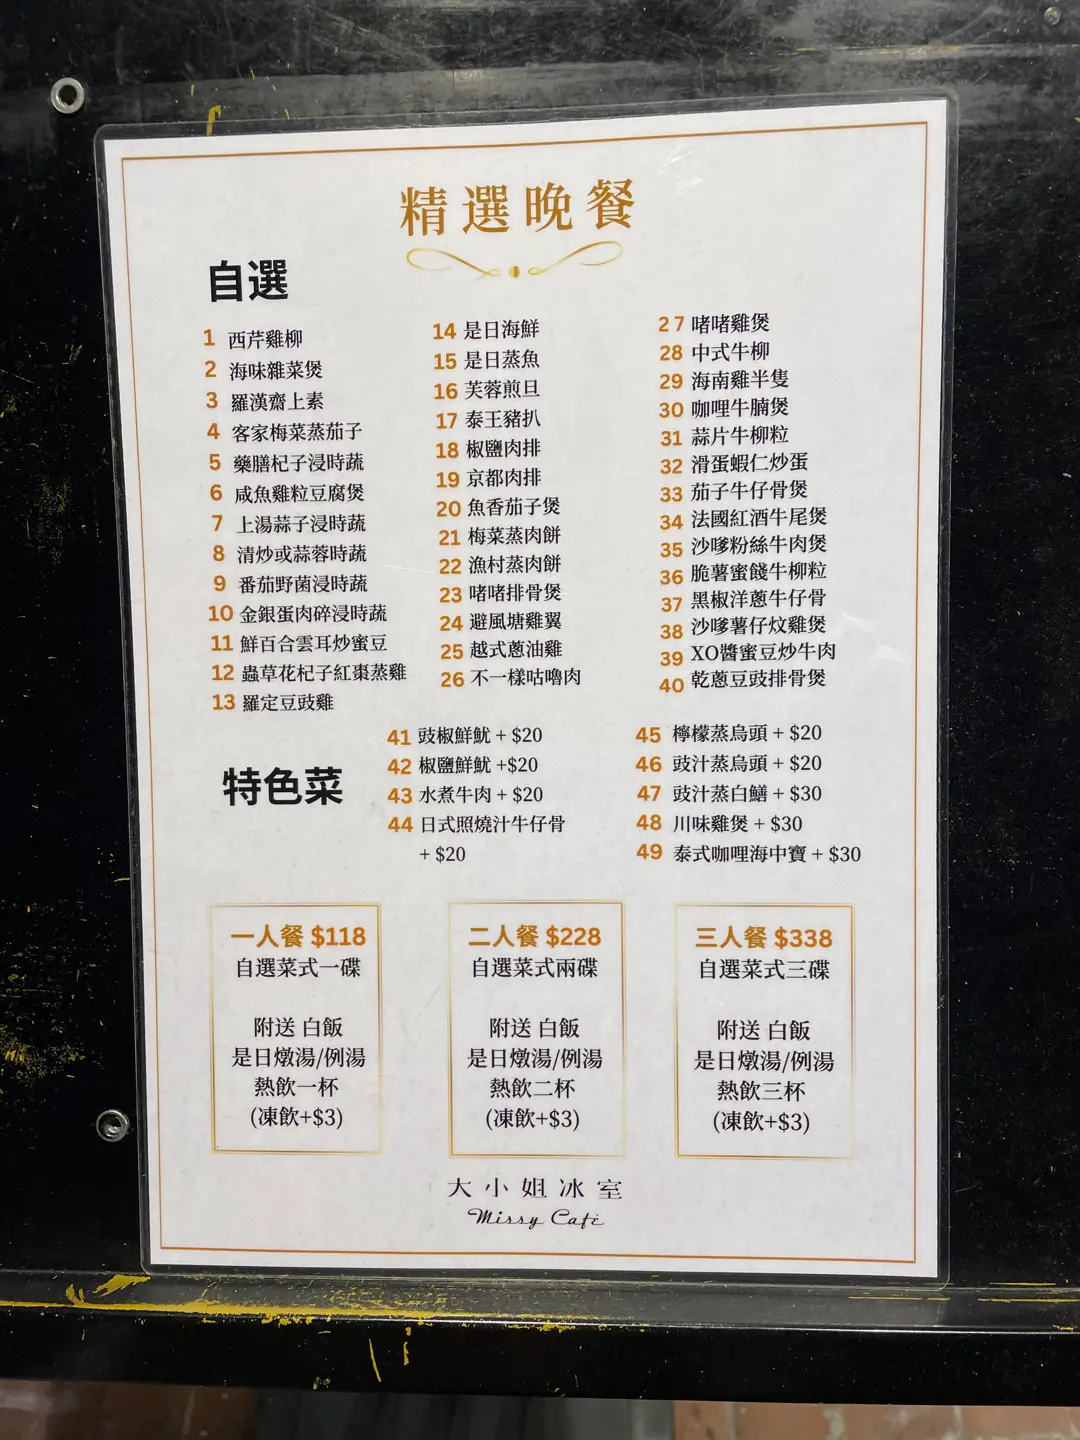 精選晚餐
自選
1 西芹雞柳
2 海味雜菜煲
3 羅漢齋上素
4 客家梅菜蒸茄子
5 藥膳杞子浸時蔬
6 咸魚雞粒豆腐煲
7 上湯蒜子浸時蔬
8 清炒或蒜蓉時蔬
9 番茄野菌浸時蔬
10 金銀蛋肉碎浸時蔬
11 鮮百合雲耳炒蜜豆
12 蟲草花杞子紅棗蒸雞
13 羅定豆豉雞
14 是日海鮮
15 是日蒸魚
16 芙蓉煎旦
17 泰王豬扒
18 椒鹽肉排
19 京都肉排
20 魚香茄子煲
21 梅菜蒸肉餅
22 漁村蒸肉餅
23 啫啫排骨煲
24 避風塘雞翼
25 越式蔥油雞
26 不一樣咕嚕肉
27 啫啫雞煲
28 中式牛柳
29 海南雞半隻
30 咖哩牛腩煲
31 蒜片牛柳粒
32 滑蛋蝦仁炒蛋
33 茄子牛仔骨煲
34 法國紅酒牛尾煲
35 沙嗲粉絲牛肉煲
36 脆薯蜜餞牛柳粒
37 黑椒洋蔥牛仔骨
38 沙嗲薯仔炆雞煲
39 XO醬蜜豆炒牛肉
40 乾蔥豆豉排骨煲
特色菜
41 豉椒鮮魷 + $20
42 椒鹽鮮魷 +$20
43 水煮牛肉 + $20
44 日式照燒汁牛仔骨
+ $20
45 檸檬蒸烏頭 + $20
46 豉汁蒸烏頭 + $20
47 豉汁蒸白鱔 + $30
48 川味雞煲 + $30
49 泰式咖哩海中寶 + $30
一人餐 $118
自選菜式一碟
附送 白飯
是日燉湯/例湯
熱飲一杯
(凍飲+$3)
二人餐 $228
自選菜式兩碟
附送 白飯
是日燉湯/例湯
熱飲二杯
(凍飲+$3)
三人餐 $338
自選菜式三碟
附送 白飯
是日燉湯/例湯
熱飲三杯
(凍飲+$3)
大小姐冰室
Missy Café